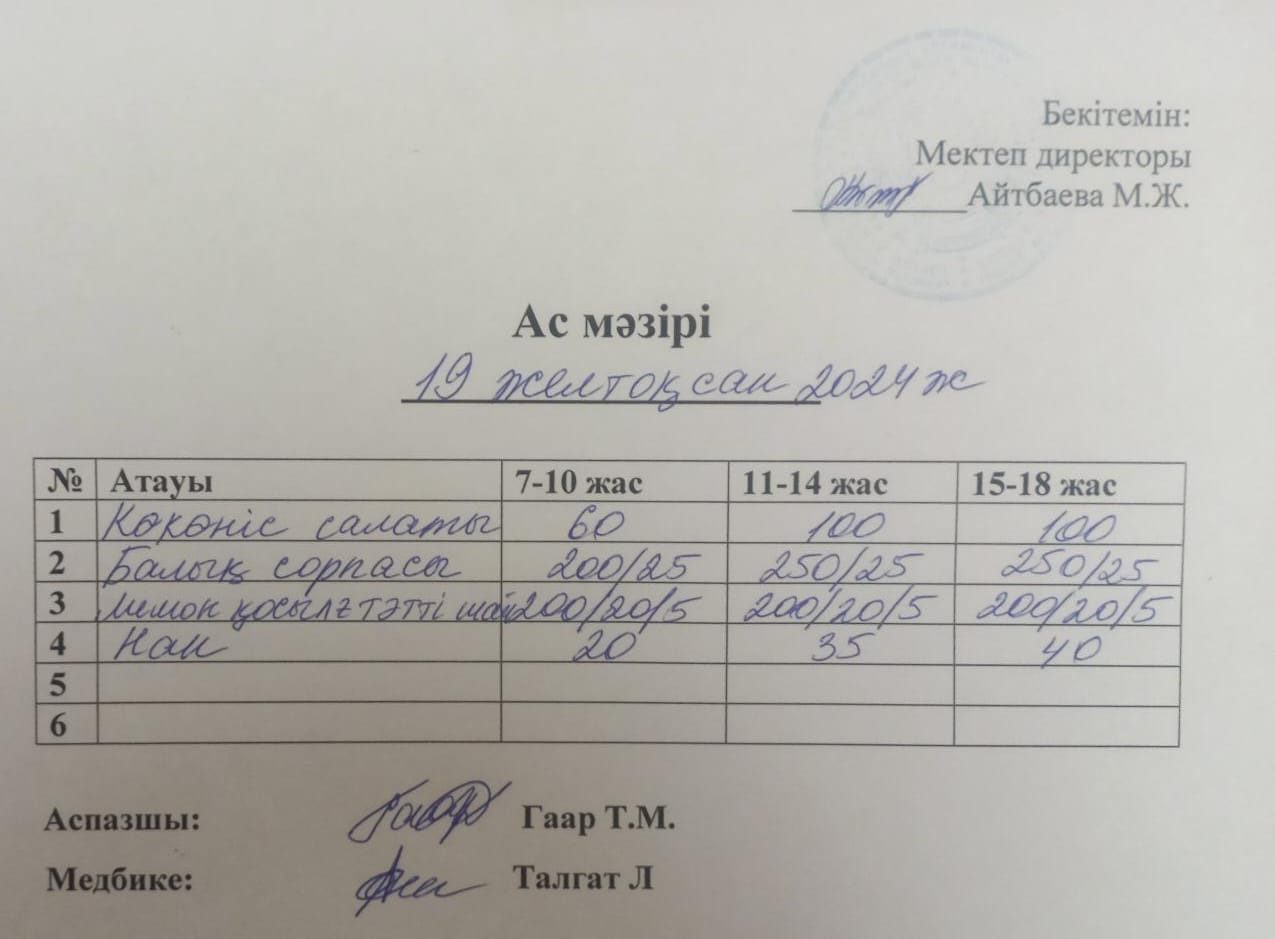 Бекітемін:
Мектеп директоры
Айтбаева М.Ж.
Ас мәзірі
19 желтоқсан 2024 ж
№ Атауы 7-10 жас 11-14 жас 15-18 жас
1 Көкөніс салаты 60 100 100
2 Балық сорпасы 200/25 250/25 250/25
3 Лимон қосылғ тәтті шай 200/20/5 200/20/5 200/20/5
4 Нан 20 35 40
5
6
Аспазшы: Гаар Т.М.
Медбике: Талгат Л